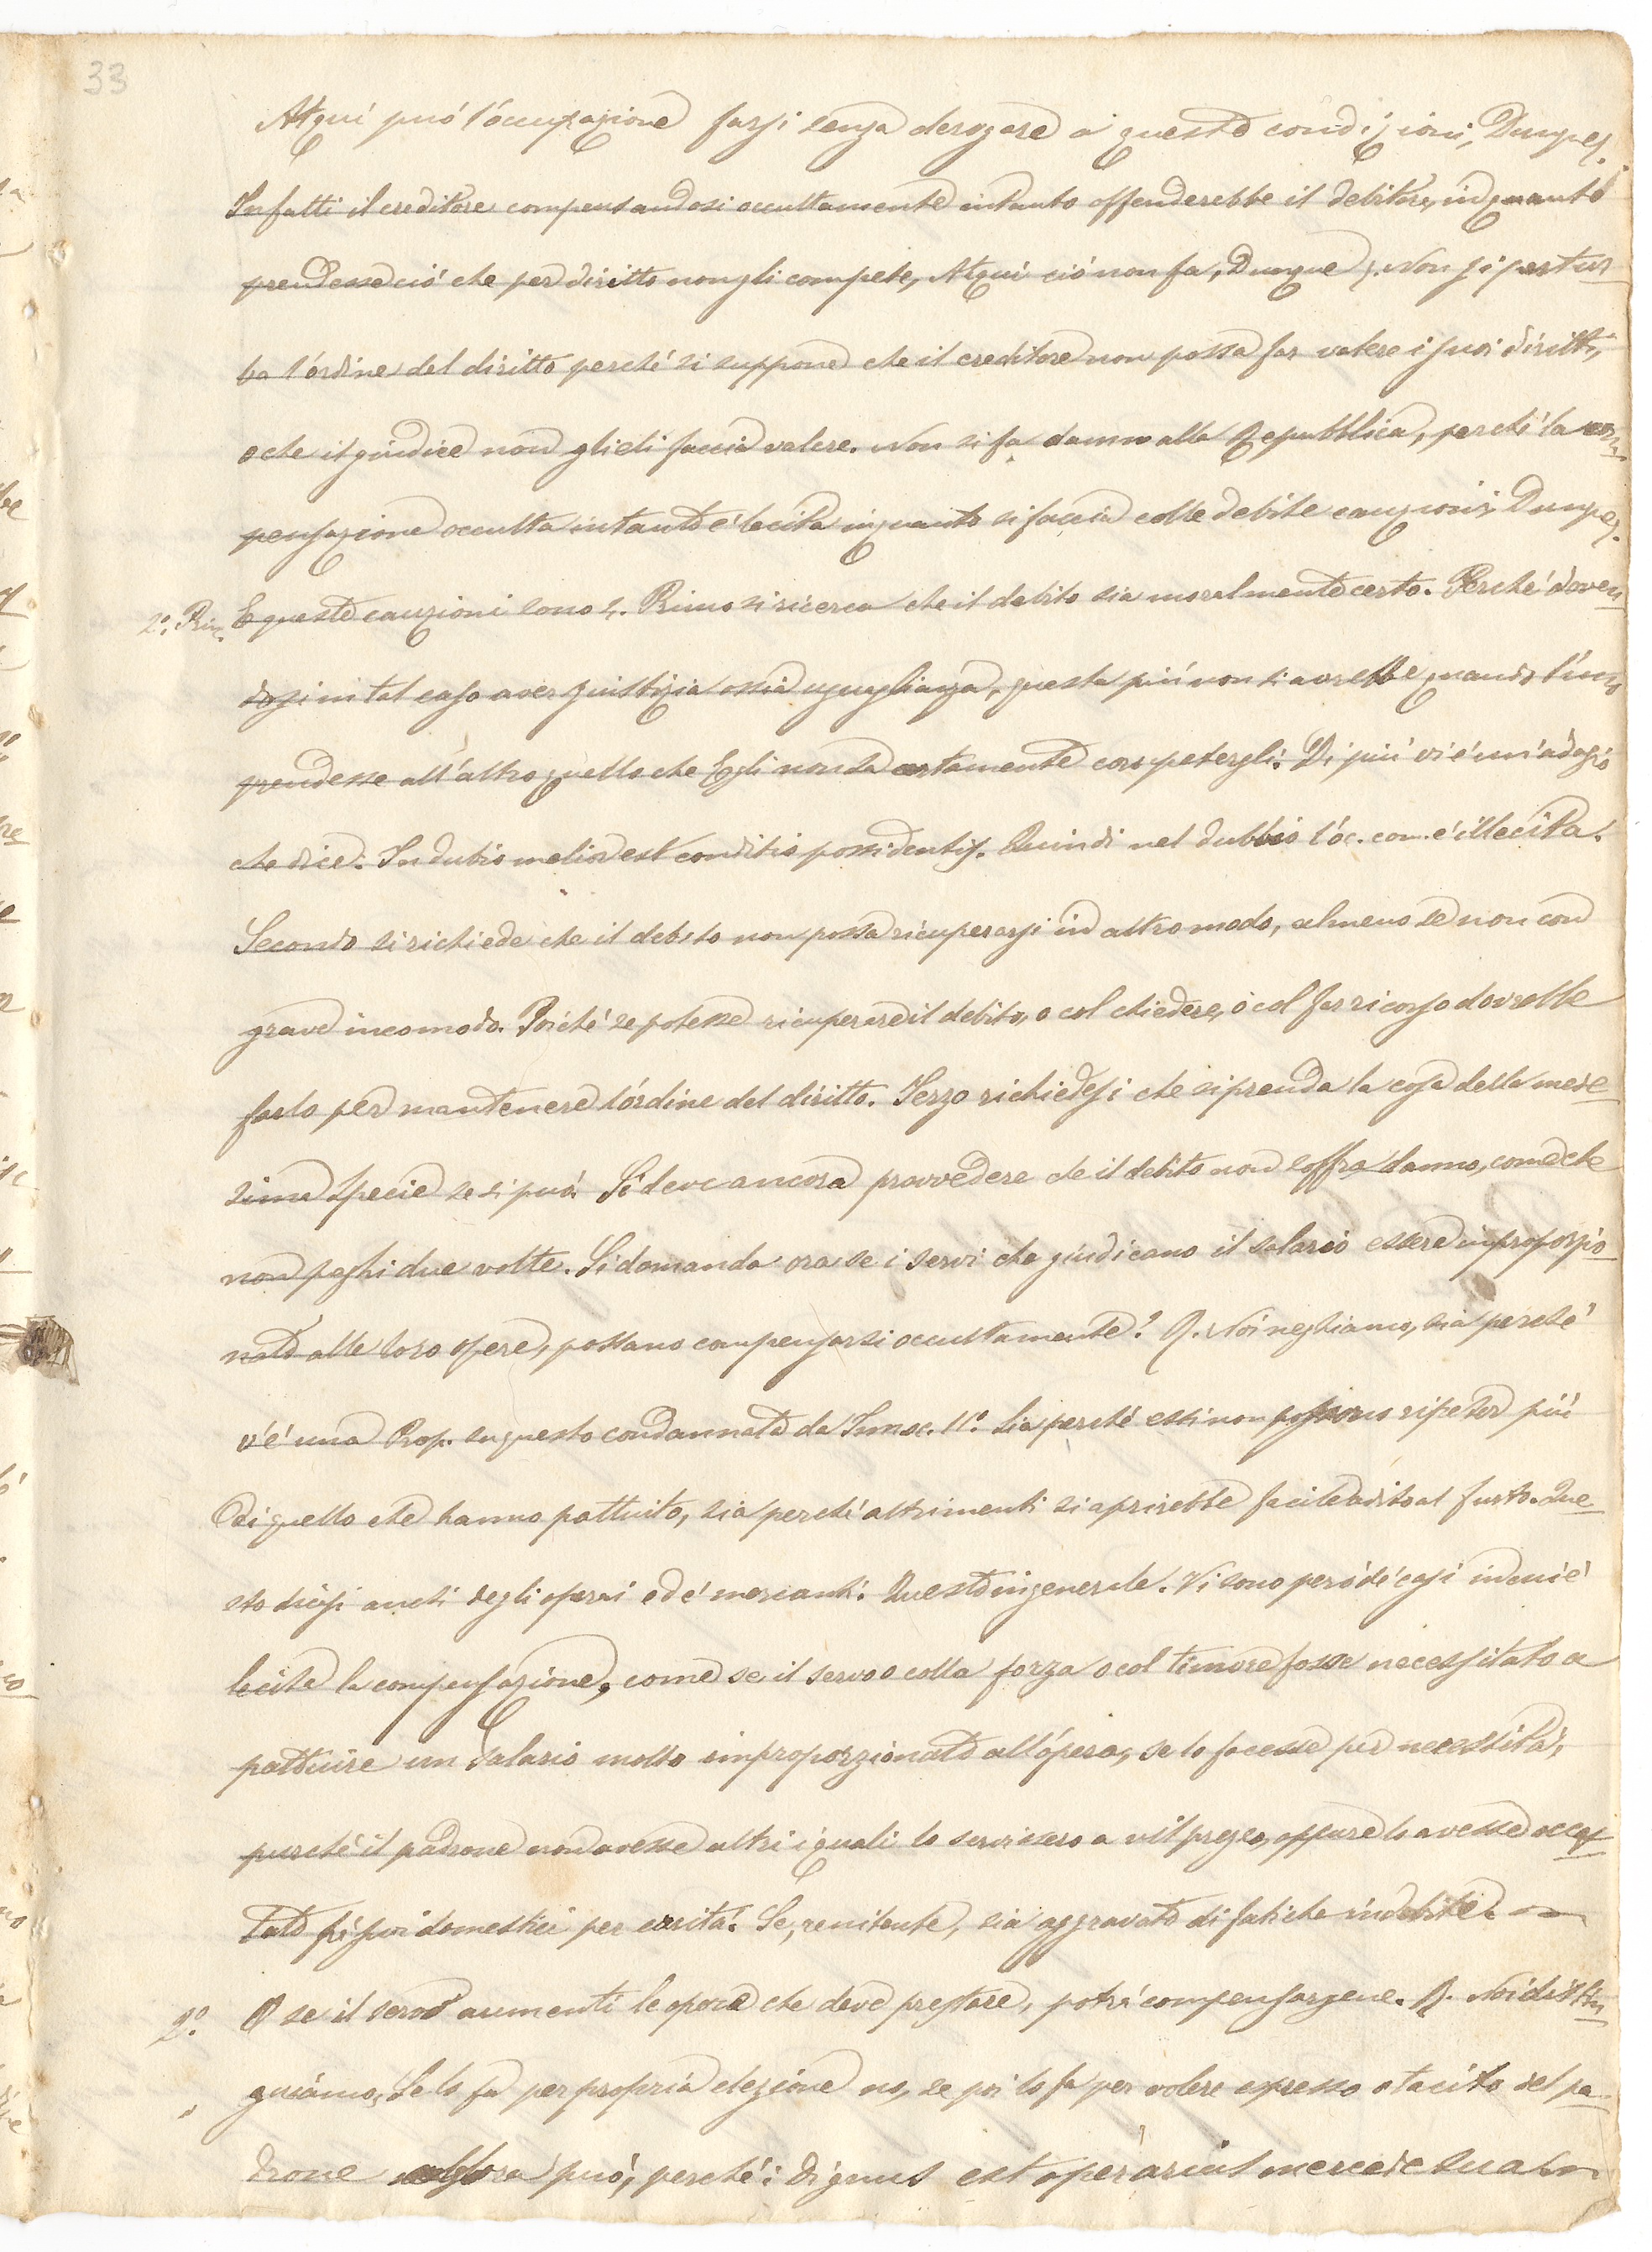 33
Atqui può l'occupazione farsi senza derogare a queste condizioni, Dunque.
Infatti il creditore compensandosi occultamente intanto offenderebbe il debitore, inquanto
prendesse ciò che per diritto non gli compete, Atqui ciò non fa, Dunque. Non si pertur
ba l'ordine del diritto perché si suppone che il creditore non possa far valere i suoi diritti,
o che il giudice non glieli faccia valere. Non si fa danno alla Repubblica, perché la com
pensazione occulta intanto é lecita inquanto si faccia colle debite cauzioni, Dunque.
2°. Prin. E queste cauzioni sono 4. Primo si ricerca che il debito sia moralmente certo. Perché doven
dosi in tal caso aver giustizia ossia uguaglianza, questa più non si avrebbe quando l'uno
prendesse all'altro quello che Egli non sa certamente competergli. Di più vi é un'adagio
che dice: In dubio melior est conditio possidentis. Quindi nel dubbio l'oc. com. é illecita.
Secondo si richiede che il debito non possa ricuperarsi in altro modo, almeno se non con
grave incomodo. Poiché se potesse ricuperare il debito, o col chiedere, o col far ricorso dovrebbe
farlo per mantenere l'ordine del diritto. Terzo richiedesi che si prenda la cosa della mede
sima specie se si può. Si deve ancora provvedere che il debito non soffra danno, come che
non paghi due volte. Si domanda ora se i servi che giudicano il salario essere improporzio
nato alle loro opere, possano compensarsi occultamente? R. Noi neghiamo, sia perché
v'é una Prop. su questo condannata da Innoc. 11°. Sia perché essi non possono ripeter più
di quello che hanno pattuito, sia perché altrimenti si aprirebbe facile adito al furto. Que
sto dicasi anche degli operai ed e' mercanti. Questo in generale. Vi sono però de' casi in cui é
lecita la compensazione, come se il servo o colla forza o col timore fosse necessitato a
pattuire un salario molto improporzionato all'opera, se lo facesse per necessità,
purché il padrone non avesse altri i quali lo servissero a vil prezzo, oppure lo avesse accet
tato fr'i suoi domestici per carità. Se, renitente, sia aggravato di fatiche indebite.
2°. O se il servo aumenti le opere che deve prestare, potrà compensarsene. R. Noi distin
guiamo, Se lo fa per propria elezione no, se poi lo fa per volere espresso o tacito del pa
drone allora può, perché: Dignus est operarius mercede sua